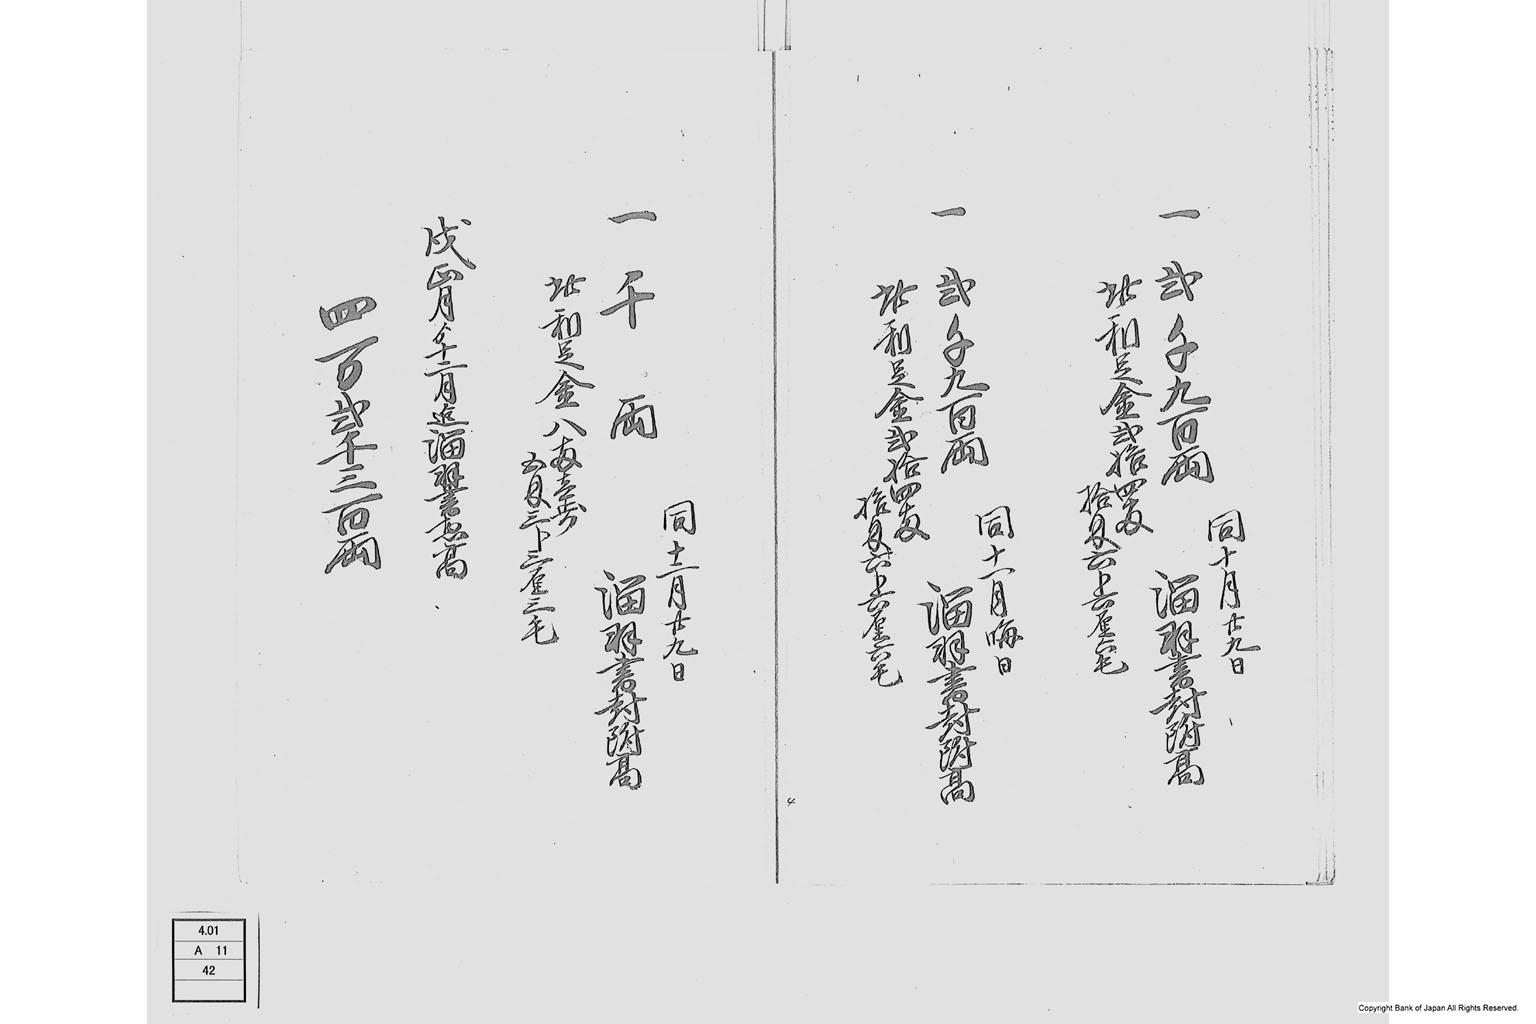 同十月廿九日
一 弐千九百両 溜羽書封附高
此利足金弐拾四両
拾匁六分六厘六毛
同十一月晦日
一 弐千九百両 溜羽書封附高
此利足金弐拾四両
拾匁六分六厘六毛
同十二月廿九日
一 千両 溜羽書封附高
此利足金八両壱歩
五匁三分三厘三毛
戌正月ゟ十二月迄溜羽書惣高
四万弐千三百両
4
4.01
A 11
42
Copyright Bank of Japan All Rights Reserved.